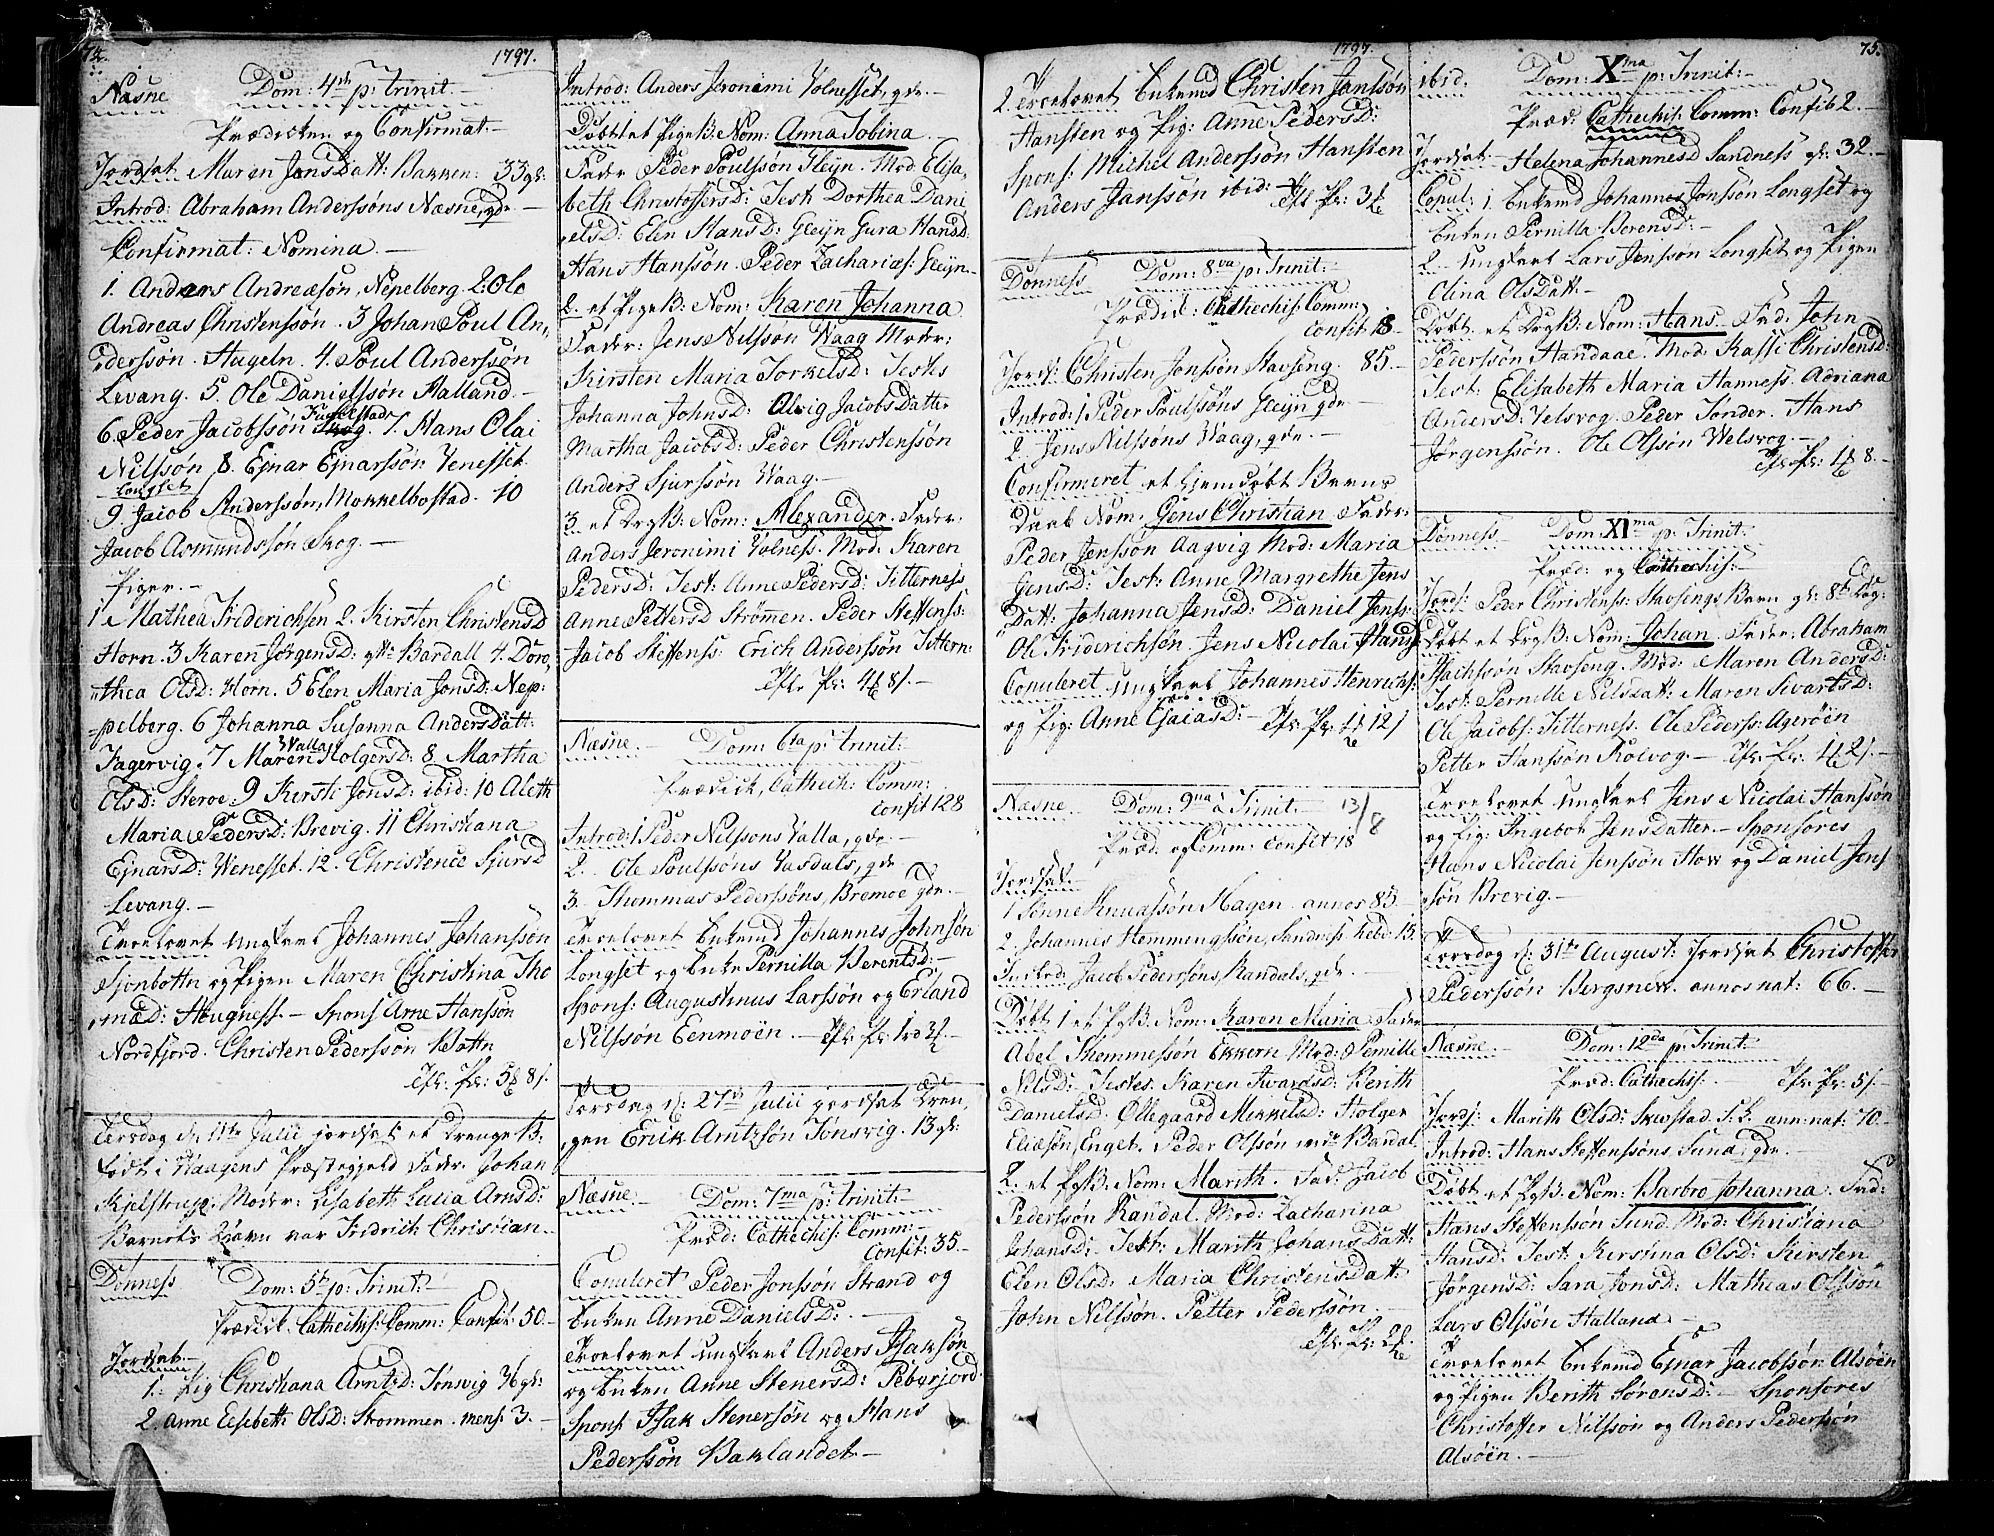 74.
1797.
Næsne Dom: 4th p: trinit:
Prædiken og Confirmat:
Jordsat Maren JonsDatt: Bakken: 33 gl:
Introd: Abraham Anderssøns Næsne, qde
Confirmat: Nomina.
1. Anders Andreasøn, Nepelberg. 2. Ole
Andreas Christenssøn. 3 Johan Poul An-
derssøn. Hugeln. 4. Poul Anderssøn
Levang. 5. Ole Danielssøn Halland.
6. Peder Jacobssøn 7. Hans Olai
Nilssøn 8. Ejnar Ejnarssøn Venesset
Longset
9. Jacob Anderssøn, Mokkelbostad. 10
Jacob Asmundssøn Skog.
Piger.
1. Mathea Friderichsen 2. Kirsten Christensd
Horn. 3 Karen Jørgensd: Bardall 4. Doro-
thea Olsd: Horn. 5 Elen Maria Jonsd: Nep-
pelberg. 6 Johanna Susanna AndersDatt:
Valla
Fagervig. 7 Maren Holgersd: 8 Martha
Olsd: Steroe. 9 Kirsti Jonsd: ibid: 10 Aleth
Maria Pedersd: Brevig. 11 Christiana
Ejnarsd: Wenesset. 12. Christence Sjursd
Levang.
Troelovet Ungkarl Johannes Johanssøn
Sjonbottn og Pigen Maren Christina Tho
mæd: Hougness. Spons Arne Hanssøn
Nordfjord. Christen Pederssøn Bottn
8 s.
Tirsdag d. 11te Julii jordsat et Drenge B:
født i Waagens Præstegjeld Fader. Johan
Kjelstrup. Moder: Lisabeth Lucia Arnsd:
Barnets Navn var Fridrich Christian.
Dønness Dom: 5t p: Trinit:
Prædik: Cathechis: Comm: Confit: 50.
Jordsat.
1. Pig Christiana Arntzd: Tonsvig 36 gl:
2. Anne Elisbeth Olsd: Strømmen. mens: 3.
Introd: Anders Jeronimi Volnesset, qde.
Døbt 1 et Pige B: Nom: Anna Tobina.
Fader Peder Poulssøn Gleijn. Mod. Elisa-
beth Christoffersd: Test Dorthea Dani
elsd: Elen Hansd: Gleijn Gura Hansd:
Hans Hanssøn. Peder Zachariæs: Gleijn
2. et Pige B: Nom: Karen Johanna
Fader: Jens Nilssøn Waag Moder:
Kirsten Maria Torkelsd: Testes
Johanna Johnsd: Alvig JacobsDatter
Martha Jacobsd: Peder Christenssøn
Anders Sjurssøn Waag.
3. et Drg B: Nom: Alexander. Fader.
Anders Jeronimi Volness. Mod: Karen
Pedersd: Test: Anne Pedersd: Titterness
Anne Pettersd Strømmen. Peder Steffenss:
Jacob Steffenss: Erich Anderssøn Tittern:
8 s.
Næsne. Dom: 6ta p: trinit:
Prædick, Cathech: Comm:
confit 128
Introd: 1 Peder Nilssøns Valla, qde.
2. Ole Poulssøns Vasdals, qde
3. Thommas Pederssøns, Bremoe qde.
Troelovet Enkemd Johannes Johnsøn
Longset og Enke Pernilla Berentsd:
Spons: Augustinus Larssøn og Erland
Nilssøn Eenmoen.
Torsdag d: 27de Julii jordsat Dren
gen Erik Arntzøn Tonsvig. 13 gl:
Næsne Dom: 7ma p: Trinit:
Præd: Cathechis: Comm:
Confit: 35.
Copuleret Peder Jonssøn Strand og
Enken Anne Danielsd:
Troelovet Ungkarl Anders Isaksøn
og Enken Anne Stenersd: Peburjord
Spons Isak Stenersøn og Hans
Pederssøn Baklandet
1797.
75.
2. Troelovet Enkemd Christen Janssøn
Hansten og Pig: Anne Pedersd:
Spons: Michel Anderssøn Hansten
Anders Janssøn ibid:
Dønness Dom: 8va p: Trinit:
Prædik: Cathechis: Comm:
confit 18
Jords: Christen Jonssøn Stavseng. 85.
Introd: 1 Peder Poulssøns Gleijn qde
2. Jens Nilssøns Waag, qde.
Confirmeret et hjemdøbt Barns
Daab Nom. Jens Christian Fader:
Peder Jenssøn Aagvig Mod: Maria
Jensd: Test: Anne Margrethe Jens
Datt: Johanna Jensd: Daniel Jenss:
Ole Friderichsøn. Jens Nicolai Hanss:
Copuleret Ungkarl Johannes Henrichs:
og Pig: Anne Esaiasd:
Næsne Dom: 9na a Trinit: 13/8
Præd. og Comm: confit 18
Jordsat
1 Tønne Knudssøn Hagen. annos 85.
2. Johannes Hemmingssøn, Sandnes: hebd 13.
Introd: Jacob Pederssøns, Randals, qde.
Døbt 1 et Pg B. Nom: Karen Maria. Fader
Abel Thommessøn Ekkern Mod: Pernille
Nilsd: Testes. Karen Ivarsd: Berith
Danielsd. Ollegaard Mikkelsd: Holger
Eliæsøn, Enget. Peder Olssøn Bardal
2. et Pg B: Nom: Marith. Fad: Jacob
Pederssøn Randal. Mod: Zacharina
Johansd: Test: Marith JohansDatt:
Elen Olsd. Maria ChristensDatt:
John Nilssøn. Petter Pederssøn.
ibid. Dom: Xma p: Trinit:
Præd: Cathechis: Comm: Confit 2.
Jordsat Helena Johannesd Sandness gl: 32.
Copul: 1. Enkemd Johannes Jonssøn Longset og
Enken Pernilla Berensd:
2. Ungkarl Lars Jenssøn Longset og Pigen
Olina OlsDatt.
Døbt. et Drg B: Nom: Hans. Fad. John
Pederssøn Handaae. Mod: Kasti Christensd:
Test: Elisabeth Maria Hanness. Adriana
Andersd: Velsvog. Peder Tønder. Hans
Jørgenssøn. Ole Olssøn Welsvog.
Dønness Dom: XIma p: Trinit:
Præd: og Cathechis:
Jords: Peder Christenss: Stavsengs Barn gl: 8te Dag:
Døbt et Drg B: Nom: Johan. Fader: Abraham
Isachssøn Stavseng. Mod: Maren Andersd:
Test: Pernille Nilsdatt: Maren Sivartsd:
Ole Jacobs: Titterness. Ole Pederss: Agerøen
Petter Hanssøn Kolvog.
Troelovet Ungkarl Jens Nicolai Hanssøn
og Pig: Ingebor JensDatter. Sponsores
Hans Nicolai Jenssøn How og Daniel Jens
søn Brevig.
Torsdag d: 31te August: jordsat Christoffer
Pederssøn Bergsnew. annos nat: 66.
Næsne. Dom: 12da p: Trinit:
Præd: Cathechis:
Jords: Marith Olsd: Skovstad. ann: nat: 70.
Introd: Hans Steffenssøns, Sund, qde.
Døbt et Pg B. Nom: Barbro Johanna. Fad:
Hans Steffenssøn Sund. Mod: Christiana
Hansd: Test: Kirstina Olsd: Kirsten
Jørgensd: Sara Jonsd: Mathias Olssøn
Lars Olssøn Halland
Troelovet Enkemd Ejnar Jacobssøn: Alsøen
og Pigen Berith Sørensd: Sponsores
Christoffer Nilssøn og Anders Pederssøn
Alsøen.